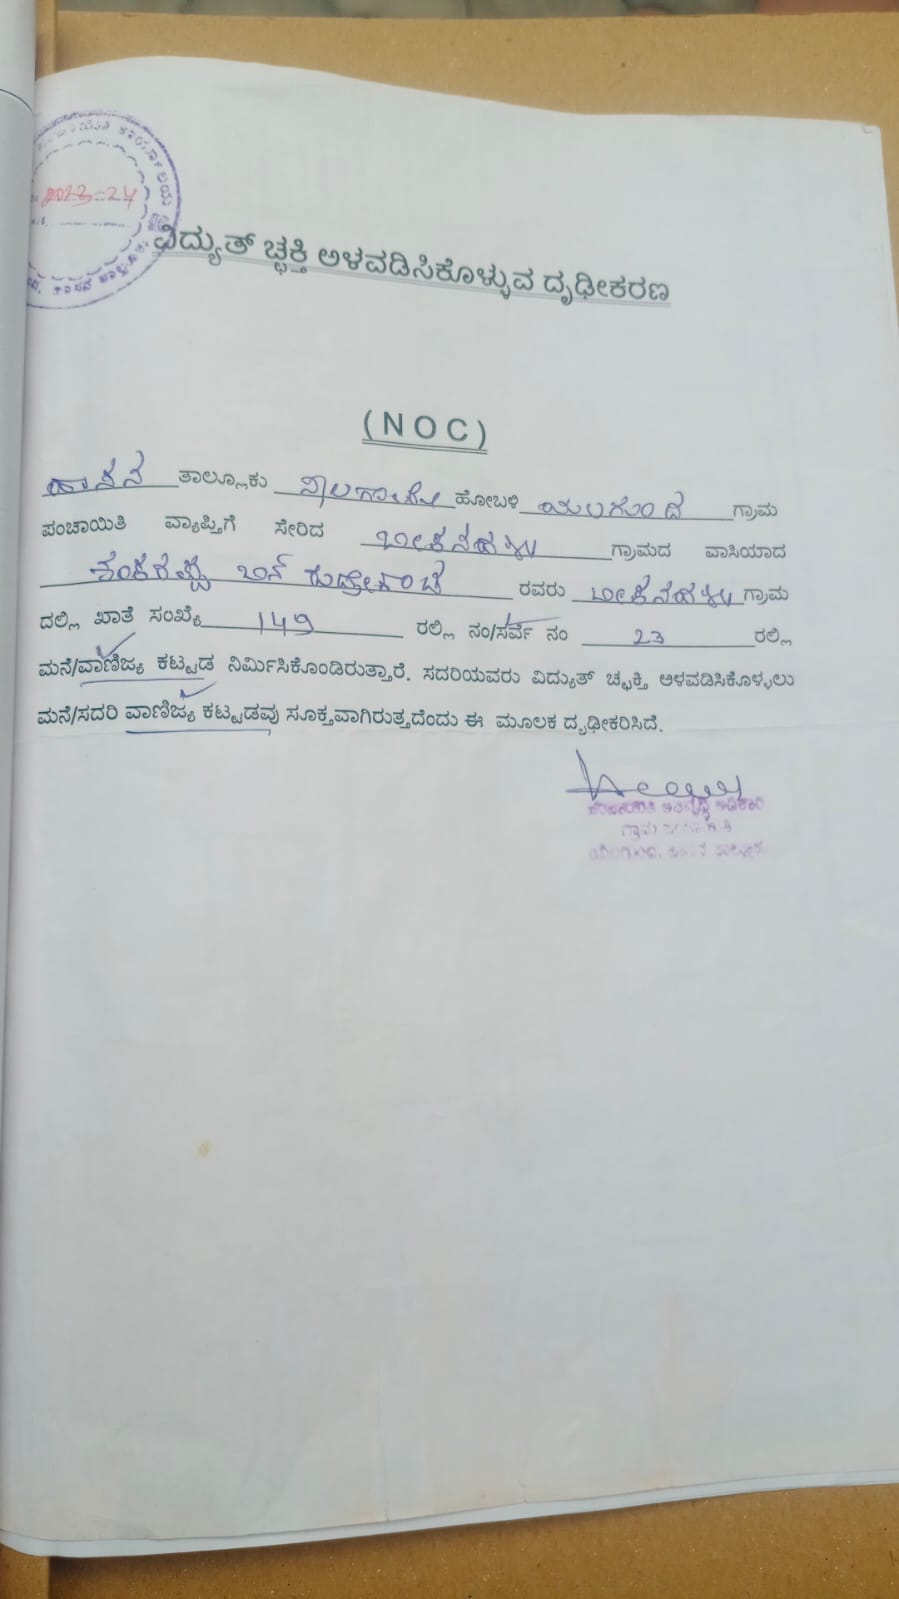 2023-24
ವಿದ್ಯುತ್ ಚ್ಛಕ್ತಿ ಅಳವಡಿಸಿಕೊಳ್ಳುವ ದೃಢೀಕರಣ
(NOC)
ಹಾಸನ ತಾಲ್ಲೂಕು ಹೋಬಳಿ ಯಲಗುಂದ ಗ್ರಾಮ
ಪಂಚಾಯಿತಿ ವ್ಯಾಪ್ತಿಗೆ ಸೇರಿದ ಬೀಕನಹಳ್ಳಿ ಗ್ರಾಮದ ವಾಸಿಯಾದ
ಬಿನ್ ರವರು ಬೀಕನಹಳ್ಳಿ ಗ್ರಾಮ
ದಲ್ಲಿ ಖಾತೆ ಸಂಖ್ಯೆ 149 ರಲ್ಲಿ ನಂ/ಸರ್ವೆ ನಂ 23 ರಲ್ಲಿ
ಮನೆ/ವಾಣಿಜ್ಯ ಕಟ್ಟಡ ನಿರ್ಮಿಸಿಕೊಂಡಿರುತ್ತಾರೆ. ಸದರಿಯವರು ವಿದ್ಯುತ್ ಚ್ಛಕ್ತಿ ಅಳವಡಿಸಿಕೊಳ್ಳಲು
ಮನೆ/ಸದರಿ ವಾಣಿಜ್ಯ ಕಟ್ಟಡವು ಸೂಕ್ತವಾಗಿರುತ್ತದೆಂದು ಈ ಮೂಲಕ ದೃಢೀಕರಿಸಿದೆ.
ಪಂಚಾಯಿತಿ ಅಭಿವೃದ್ಧಿ ಅಧಿಕಾರಿ
ಗ್ರಾಮ ಪಂಚಾಯಿತಿ